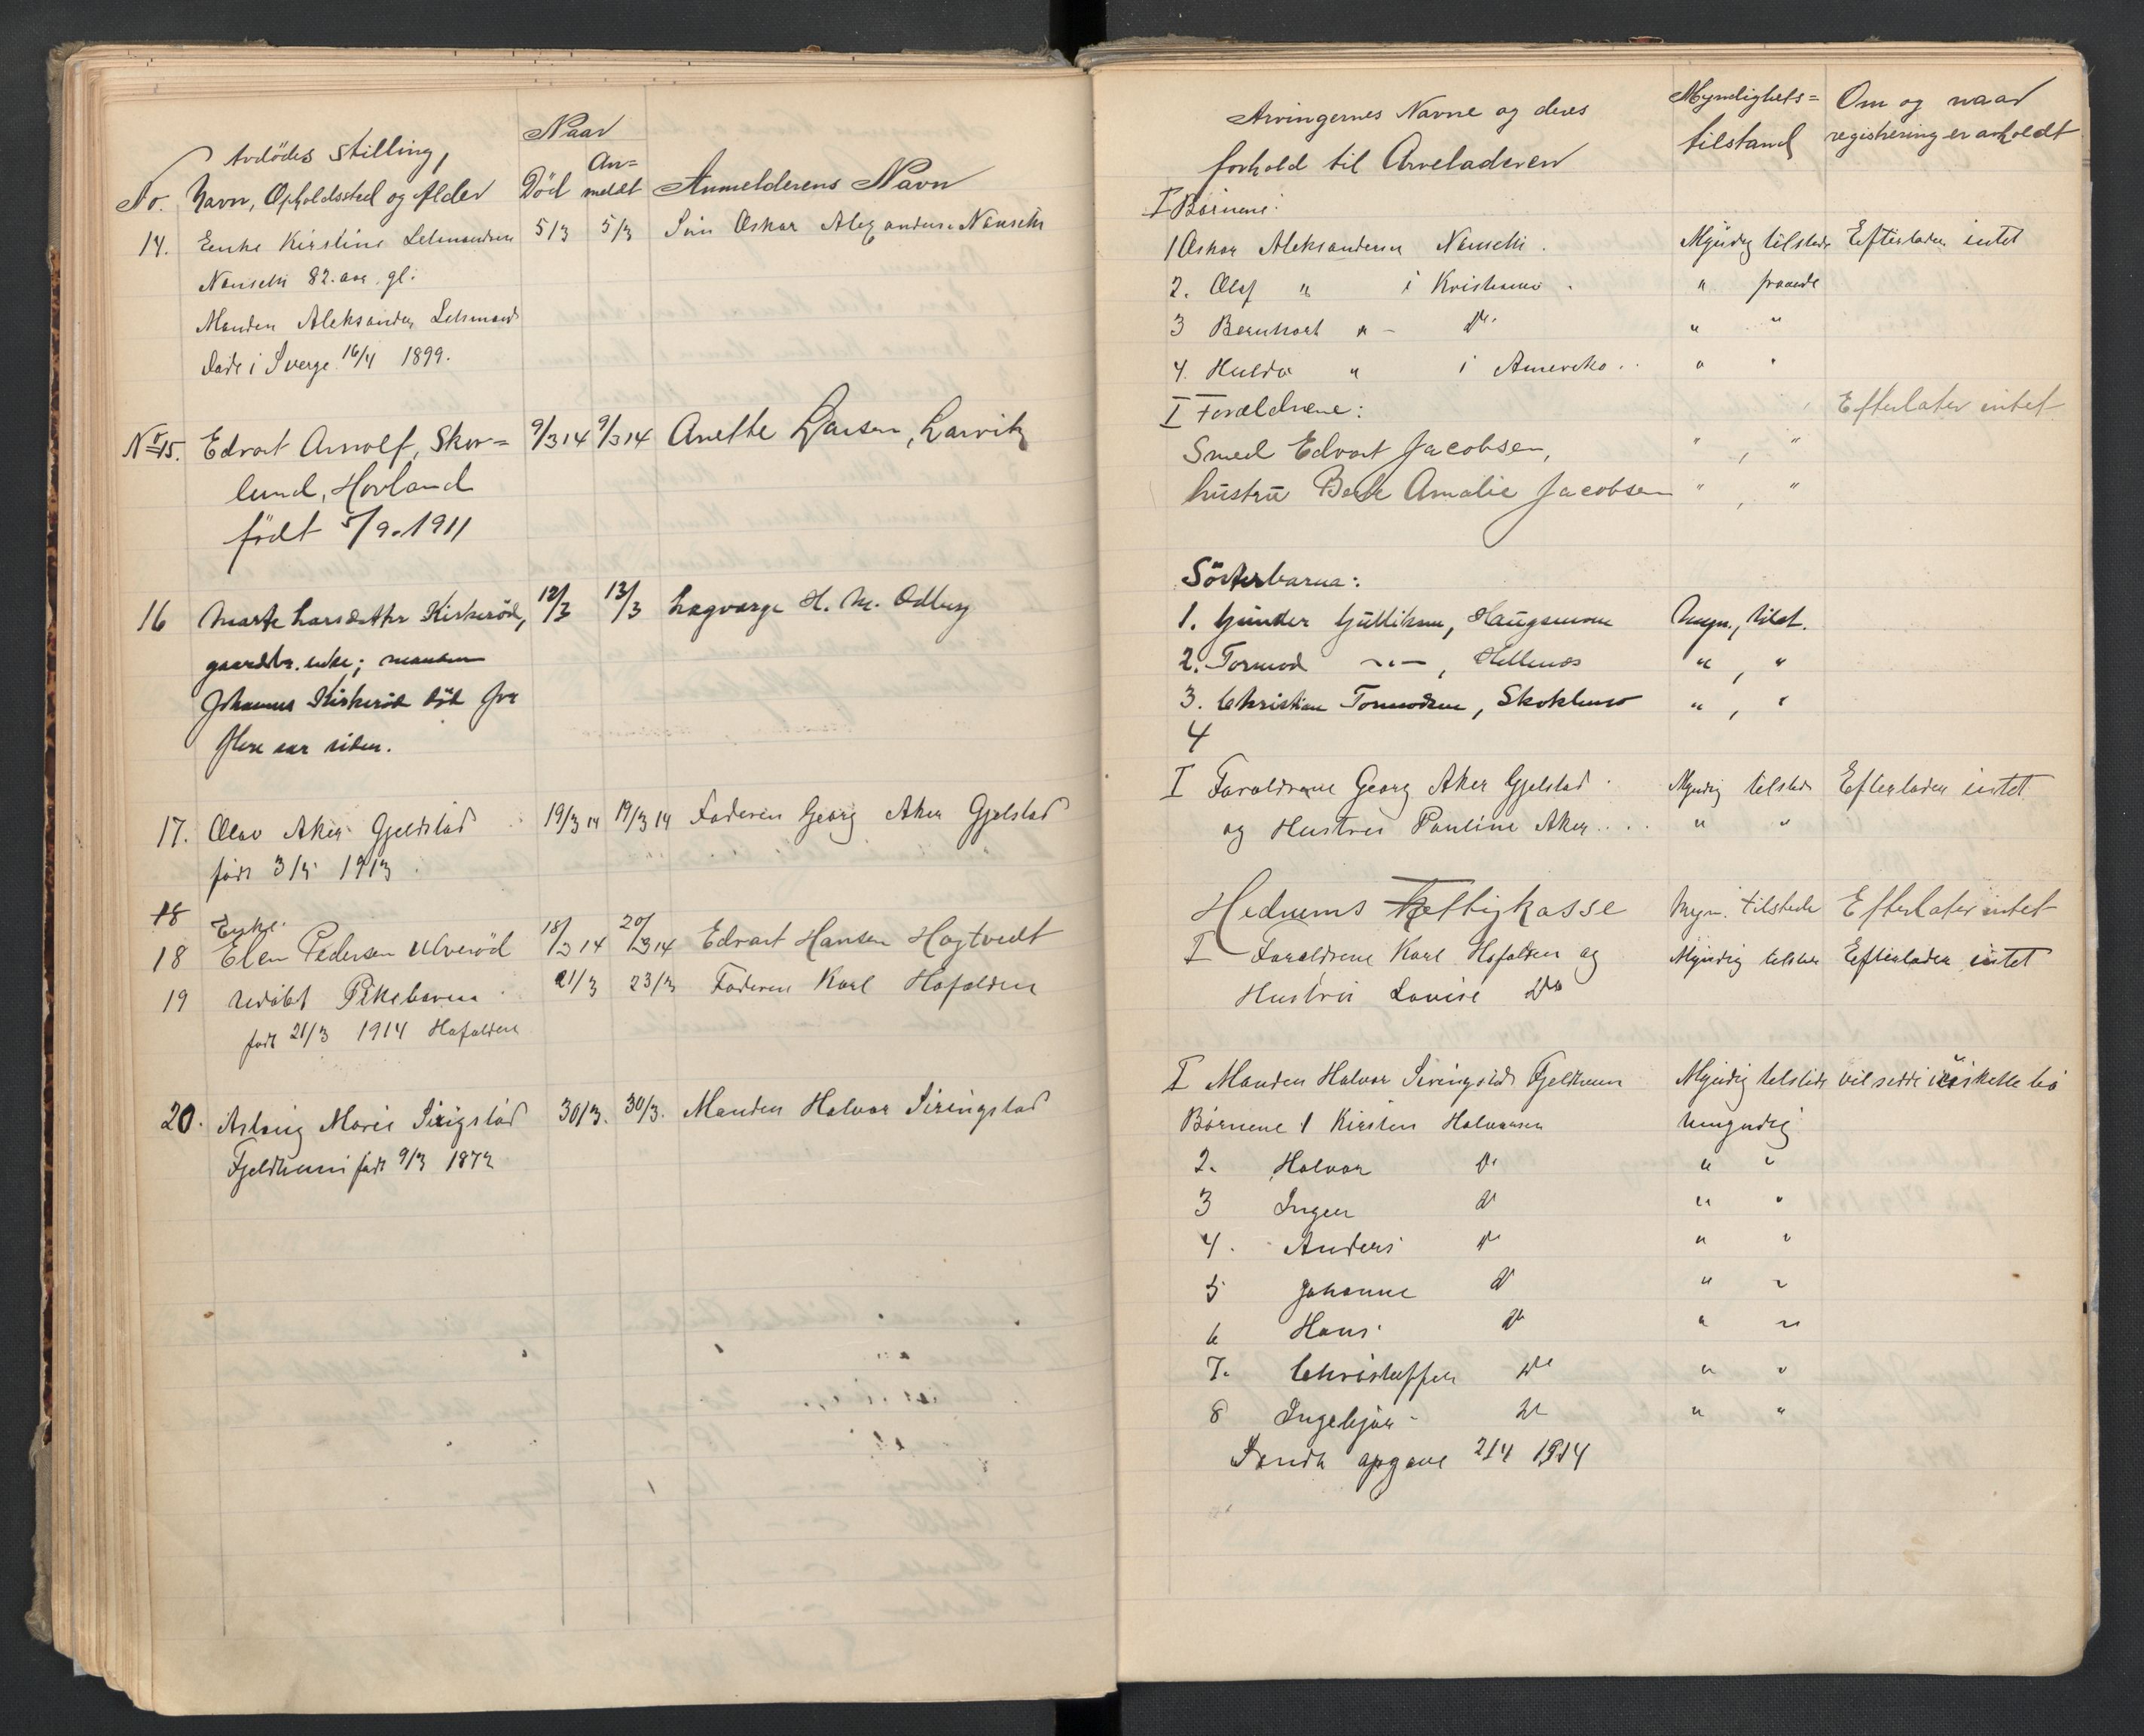 Avdödes stilling,
No. Navn, Opholdssted og Alder
Naar
Död
An=
meldt
Anmelderens Navn
14. Enke Kirstine Lehmandsen 5/3 5/3 Sön Oskar Alexandersen Nanseth
Nanseth 82. aar gl.
Manden Aleksander Lehmand
döde i Sverge 16/4 1899.
No 15. Edvart Arnolf, Skor= 9/3 14 9/3 14 Anette Larsen, Larvik
lund, Hovland
födt 5/9. 1911
16 Marte Larsdatter Kirkeröd, 12/3 13/3 Lagværge H. M. Odberg
gaardbr. enke; manden
Johannes Kirkeröd död for
flere aar siden.
17. Olav Aker Gjeldstad 19/3 14 19/3 14 Faderen Georg Aker Gjelstad
födt 3/5 1913
18 Enke.
18 Elen Pedersen Ulveröd 18/3 14 20/3 14 Edvart Hansen Hogtvedt
19 udöbt Pikebarn 21/3 23/3 Faderen Karl Hafalden
födt 21/3 1914 Hafalden
20. Aslaug Marie Sirigstad 30/3. 30/3. Manden Halvor Siringstad
Fjeldheim födt 9/3 1873
Arvingernes Navne og deres
forhold til Arveladeren
Myndighets=
tilstand
Om og naar
registrering er avholdt
I Börnene:
1 Oskar Aleksandersen Nanseth. Myndig tilstede Efterlader intet
2. Olaf " i Kristiania. " fraværende
3 Bernhart " - Do. " "
4. Hulda " i Amerika.. " "
I Forældrene: Efterlater intet
Smed Edvart Jacobsen, " , "
hustru Berte Amalie Jacobsen " , "
Sösterbarna:
1. Gunder Gulliksen, Haugenmoen Myn., tilst.
2. Tormod -"-, Hellenes " , "
3. Christian Tormodsen, Skoklund " , "
4
I Foroldrene Georg Aker Gjelstad Myndig tilstede Efterlader intet
og Hustru Pauline Aker.... " "
Hedrums Fattigkasse Myn. tilstede Efterlater intet
I Foroldrene Karl Hafalden og Myndig tilstede Efterlader intet
Hustru Lovise Do
I Manden Halvor Siringstad Fjeldheim Myndig tilstede vil sidde i uskiftet bo
Börnene 1 Kirsten Halvorsen umyndig
2. Halvor Do " "
3 Inger Do " "
4. Anders Do " "
5 Johanne Do " "
6 Hans Do " "
7. Christoffer Do " "
8 Ingebjör Do " "
Sendt opgave 2/4 1914